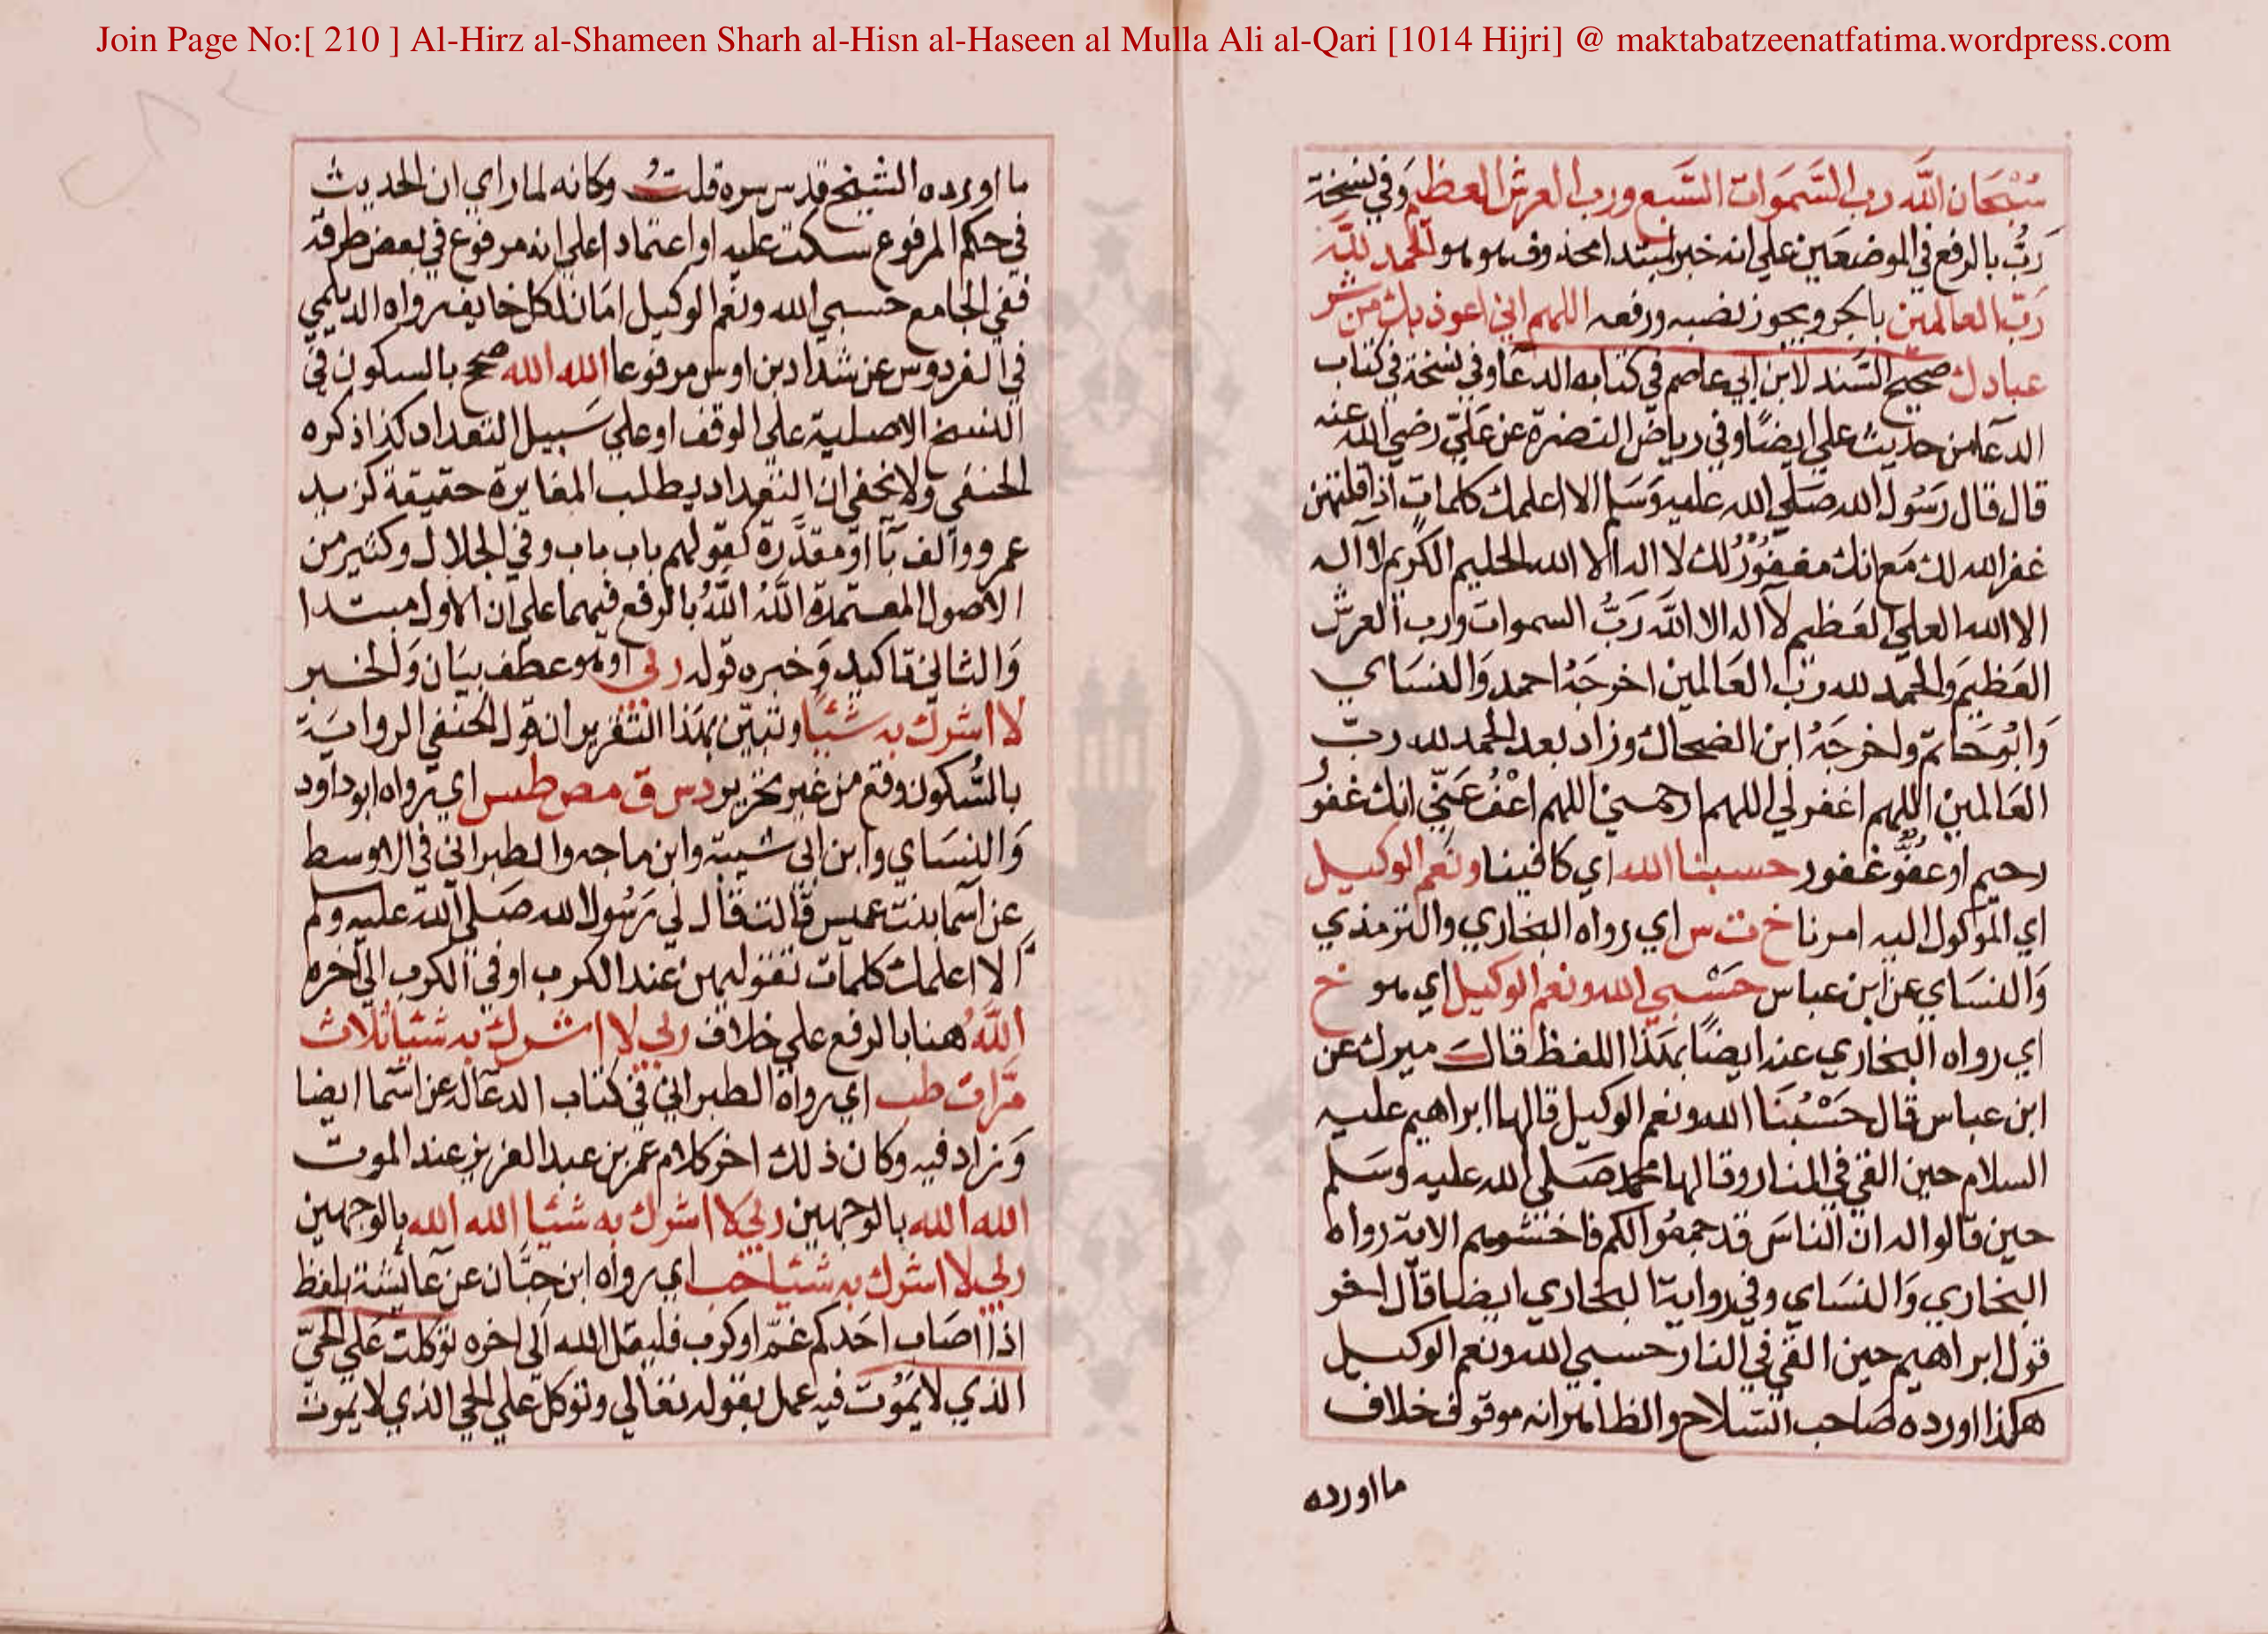 Join Page No:[ 210 ] Al-Hirz al-Shameen Sharh al-Hisn al-Haseen al Mulla Ali al-Qari [1014 Hijri] @ maktabatzeenatfatima.wordpress.com
سُبْحَان اللَّه رب السَّمَوات السَّبع ورب العرش العظيم وَفي نسخة
رَبُّ بالرفع في الموضعَين علي انه خبر لمبتدا محذوف هو هو الحمد للَّه
رَبّ العالمين بالجر ويجوز نصبه ورفعه اللهم اني اعوذ بك من شر
عبادك صحيح السَّند لابن ابي عاصم في كتابه الدعا وفي نسخة في كتاب
الدعا من حديث علي ايضًا وفي رياض النضرة عن عَليّ رضي الله عنه
قال قال رَسُول الله صَلي الله عليه وَسَلم الا اعلمك كلمات اذا قلتهن
غفر الله لك مَع انك مغفُوْرٌ لك لا اله الا الله الحليم الكريم لا اله
الا الله العلي العَظيم لا اله الا اللَّه رَبُّ السموات ورب العرش
العَظيم وَالحمد لله ربّ العَالمين اخرجَهُ احمد وَالنسَاي
وَابُوحَاتم واخرجَهُ ابن الضحاك وزاد بعد الحمد لله ربّ
العَالمين اللهم اغفر لي اللهم ارحمني اللهم اعْفُ عَنِّي انك غفُور
رحيم او عفُوّ غفور حسبنا الله اي كافينا ونعم الوكيل
اي الموكول اليه امرنا خ ت س اي رواه البخاري والترمذي
وَالنسَاي عن ابن عباس حَسْبي الله ونعم الوكيل اي هو خ
اي رواه البخاري عنه ايضًا بهَذا اللفظ قال ميرك عن
ابن عباس قال حَسْبُنَا الله ونعم الوكيل قالها ابراهيم عليه
السلام حين القي في النار وقالها محمد صَلي الله عليه وسَلم
حين قالوا له ان الناسَ قد جمعُوا لكم فاخشوهم الاية رواه
البخاري وَالنسَاي وفي رواية البخاري ايضا قال اخر
قول ابراهيم حين القي في النار حسبي الله ونعم الوكيل
هكذا اورده صَاحب السّلاح والظاهر انه موقوف خلاف
ما اورده
ما اورده الشيخ قدس سره قلتُ وكانه لما راي ان الحديث
في حكم المرفوع سكت عليه او اعتمادا علي انه مرفوع في بعض طرقه
ففي الجامع حسبي الله ونعم الوكيل امَان لكل خايف رواه الديلمي
في الفردوس عن شداد بن اوس مرفوعا الله الله صحح بالسكون في
النسخ الاصلية علي الوقف او علي سَبيل التعداد كذا ذكره
الحنفي ولا يخفي ان التعداد يطلب المغايرة حقيقة كزيد
عمرو والف با او مقدَّرة كقولهم باب باب وفي الجلال وكثير من
الاصول المعتمدة اللَّهُ اللَّهُ بالرفع فيهما علي ان الاول مبتدا
وَالثاني تاكيد وَخبره قوله ربي او هو عطف بيَان وَالخبر
لا اشرك به شيًا وتبيّن بهَذا التقرير ان قول الحنفي الرواية
بالسُّكون وقع من غير تحرير د س ق مص طس اي رواه ابو داود
وَالنسَاي وابن ابي شيبة وابن ماجه والطبراني في الاوسط
عن اسما بنت عميس قالت قال لي رَسُول الله صَلي الله عليه وسلم
الا اعلمك كلمات تقوليهن عند الكرب او في الكرب الي اخره
اللَّهُ هنا بالرفع علي خلاف ربي لا اشرك به شيا ثلاث
مَّرات طب اي رواه الطبراني في كتاب الدعا له عن اسما ايضا
وَزاد فيه وكان ذلك اخر كلام عمر بن عبد العزيز عند الموت
الله الله بالوجهين ربي لا اشرك به شيا الله الله بالوجهين
ربي لا اشرك به شيا حب اي رواه ابن حبَّان عن عَائشة بلفظ
اذا اصَاب احَدكم غمّ او كرب فليقل الله الي اخره توكلت عَلي الحيّ
الذي لا يَمُوْت فيه عمل بقوله تعالي وتوكل علي الحي الذي لا يموت